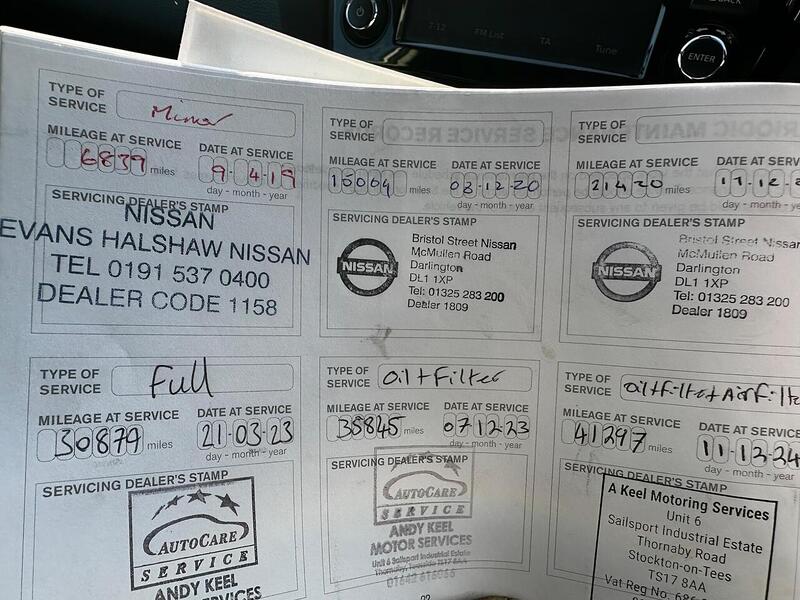 BACK
7:12
FM List
TA
Tune
ENTER
TYPE OF SERVICE
Minor
MILEAGE AT SERVICE
6839 miles
DATE AT SERVICE
9-4-19
day - month - year
SERVICING DEALER'S STAMP
NISSAN
EVANS HALSHAW NISSAN
TEL 0191 537 0400
DEALER CODE 1158
TYPE OF SERVICE
MILEAGE AT SERVICE
15004 miles
DATE AT SERVICE
03-12-20
day - month - year
SERVICING DEALER'S STAMP
NISSAN
Bristol Street Nissan
McMullen Road
Darlington
DL1 1XP
Tel: 01325 283 200
Dealer 1809
TYPE OF SERVICE
MILEAGE AT SERVICE
21420 miles
DATE AT SERV
17-12-2
day - month - ye
SERVICING DEALER'S STAMP
NISSAN
Bristol Street Nissan
McMullen Road
Darlington
DL1 1XP
Tel: 01325 283 200
Dealer 1809
TYPE OF SERVICE
Full
MILEAGE AT SERVICE
30879 miles
DATE AT SERVICE
21-03-23
day - month - year
SERVICING DEALER'S STAMP
AUTOCARE
SERVICE
ANDY KEEL
SERVICES
TYPE OF SERVICE
oil + Filter
MILEAGE AT SERVICE
35845 miles
DATE AT SERVICE
07-12-23
day - month - year
SERVICING DEALER'S STAMP
AUTOCARE
SERVICE
ANDY KEEL
MOTOR SERVICES
Unit 6 Sailsport Industrial Estate
Thornaby, Teesside TS17 8AA
22
TYPE OF SERVICE
oil+filter+Airfilte
MILEAGE AT SERVICE
41297 miles
DATE AT SERVICE
11-12-24
day - month - year
SERVICING DEALER'S STAMP
A Keel Motoring Services
Unit 6
Sailsport Industrial Estate
Thornaby Road
Stockton-on-Tees
TS17 8AA
Vat Reg No. 686